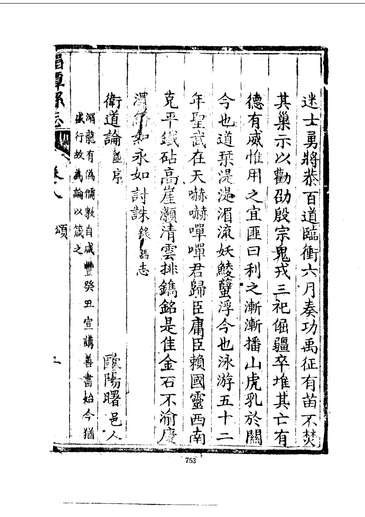 迷士勇將恭百道臨衝六月奏功禹征有苗不焚
其巢示以勸劭殷宗鬼戎三祀倔疆卒堆其亡有
德有威惟用之宜匪曰利之漸漸播山虎乳於關
今也道栞湜湜湄流妖鯪蠥浮今也泳游五十二
年聖武在天嚇嚇嘽嘽君歸臣庸臣賴國靈西南
克平鐵砧高崖灝清雲排鐫銘是隹金石不渝慶
如永如討誅
錢志
衛道論並序
歐陽曙邑人
湄龍有僞儒教自咸豐癸丑宣講善書始今猶
盛行故為論以箴之
湄潭縣志
卷八
頌
753